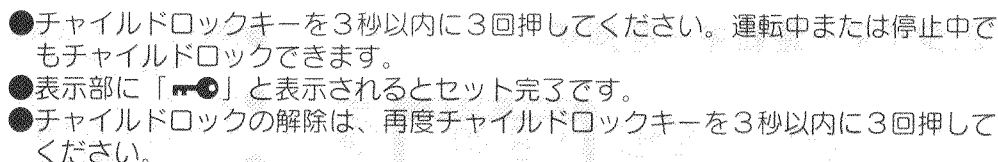 ●チャイルドロックキーを3秒以内に3回押してください。運転中または停止中で
もチャイルドロックできます。
●表示部に「🗝」と表示されるとセット完了です。
●チャイルドロックの解除は、再度チャイルドロックキーを3秒以内に3回押して
ください。